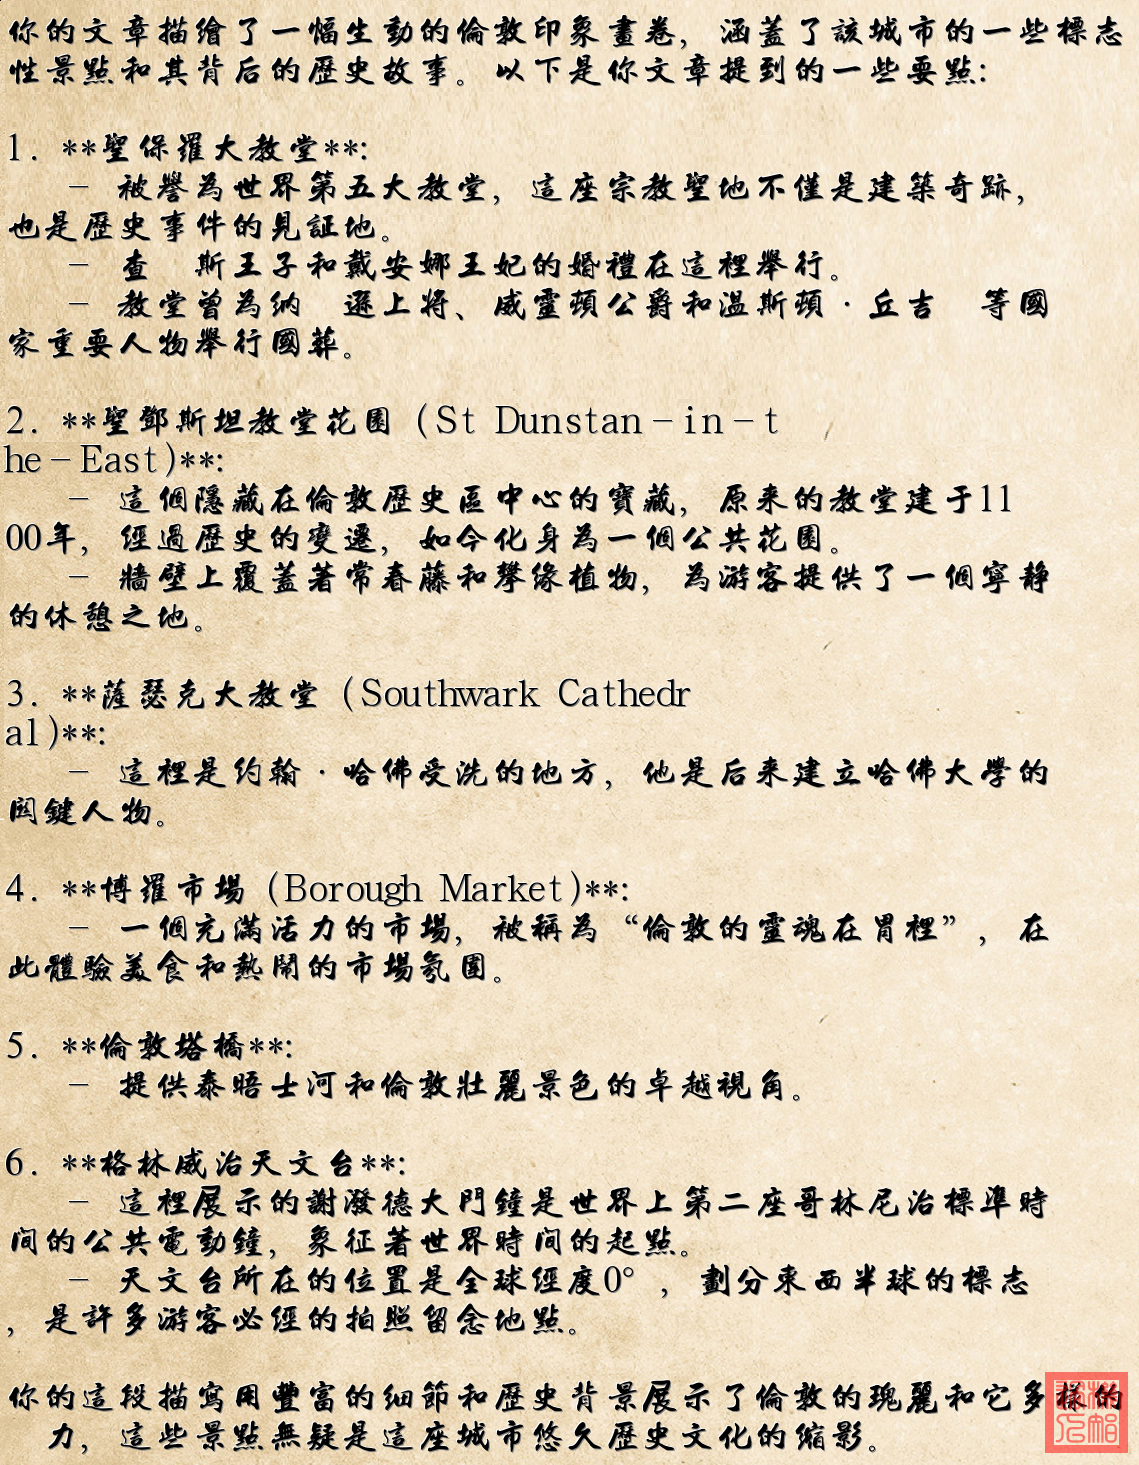 你的文章描繪了一幅生動的倫敦印象畫卷，涵蓋了該城市的一些標志
性景點和其背后的歷史故事。以下是你文章提到的一些要點：
1. **聖保羅大教堂**:
- 被譽為世界第五大教堂，這座宗教聖地不僅是建築奇跡，
也是歷史事件的見証地。
- 查 斯王子和戴安娜王妃的婚禮在這裡舉行。
- 教堂曾為納 遜上將、威靈頓公爵和温斯頓·丘吉 等國
家重要人物舉行國葬。
2. **聖鄧斯坦教堂花園 (St Dunstan-in-t
he-East)**:
- 這個隱藏在倫敦歷史區中心的寶藏，原来的教堂建于11
00年，經過歷史的變遷，如今化身為一個公共花園。
- 牆壁上覆蓋著常春藤和攀緣植物，為游客提供了一個寧静
的休憩之地。
3. **薩瑟克大教堂 (Southwark Cathedr
al)**:
- 這裡是约翰·哈佛受洗的地方，他是后来建立哈佛大學的
関鍵人物。
4. **博羅市場 (Borough Market)**:
- 一個充滿活力的市場，被稱為“倫敦的靈魂在胃裡”，在
此體驗美食和熱鬧的市場氛圍。
5. **倫敦塔橋**:
- 提供泰晤士河和倫敦壯麗景色的卓越視角。
6. **格林威治天文台**:
- 這裡展示的謝潑德大門鐘是世界上第二座哥林尼治標準時
间的公共電動鐘，象征著世界時间的起點。
- 天文台所在的位置是全球經度0°，劃分東西半球的標志
，是許多游客必經的拍照留念地點。
你的這段描寫用豐富的细節和歷史背景展示了倫敦的瑰麗和它多樣的
力，這些景點無疑是這座城市悠久歷史文化的缩影。